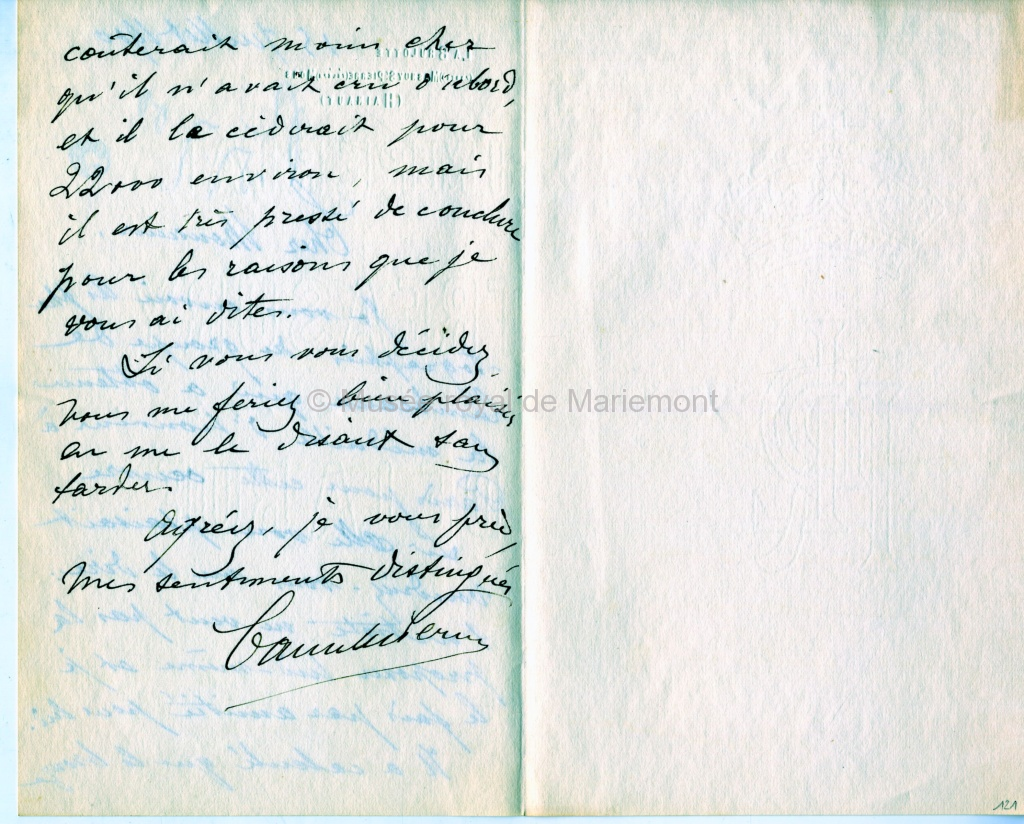 coûterait moins cher
qu'il n'avait cru d'abord,
et il la cèderait pour
22000 environ, mais
il est très pressé de conclure
pour les raisons que je
vous ai dites.
Si vous vous décidez,
vous me feriez bien plaisir
en me le disant sans
tarder.
Agréez, je vous prie,
mes sentiments distingués
© Musée royal de Mariemont
121